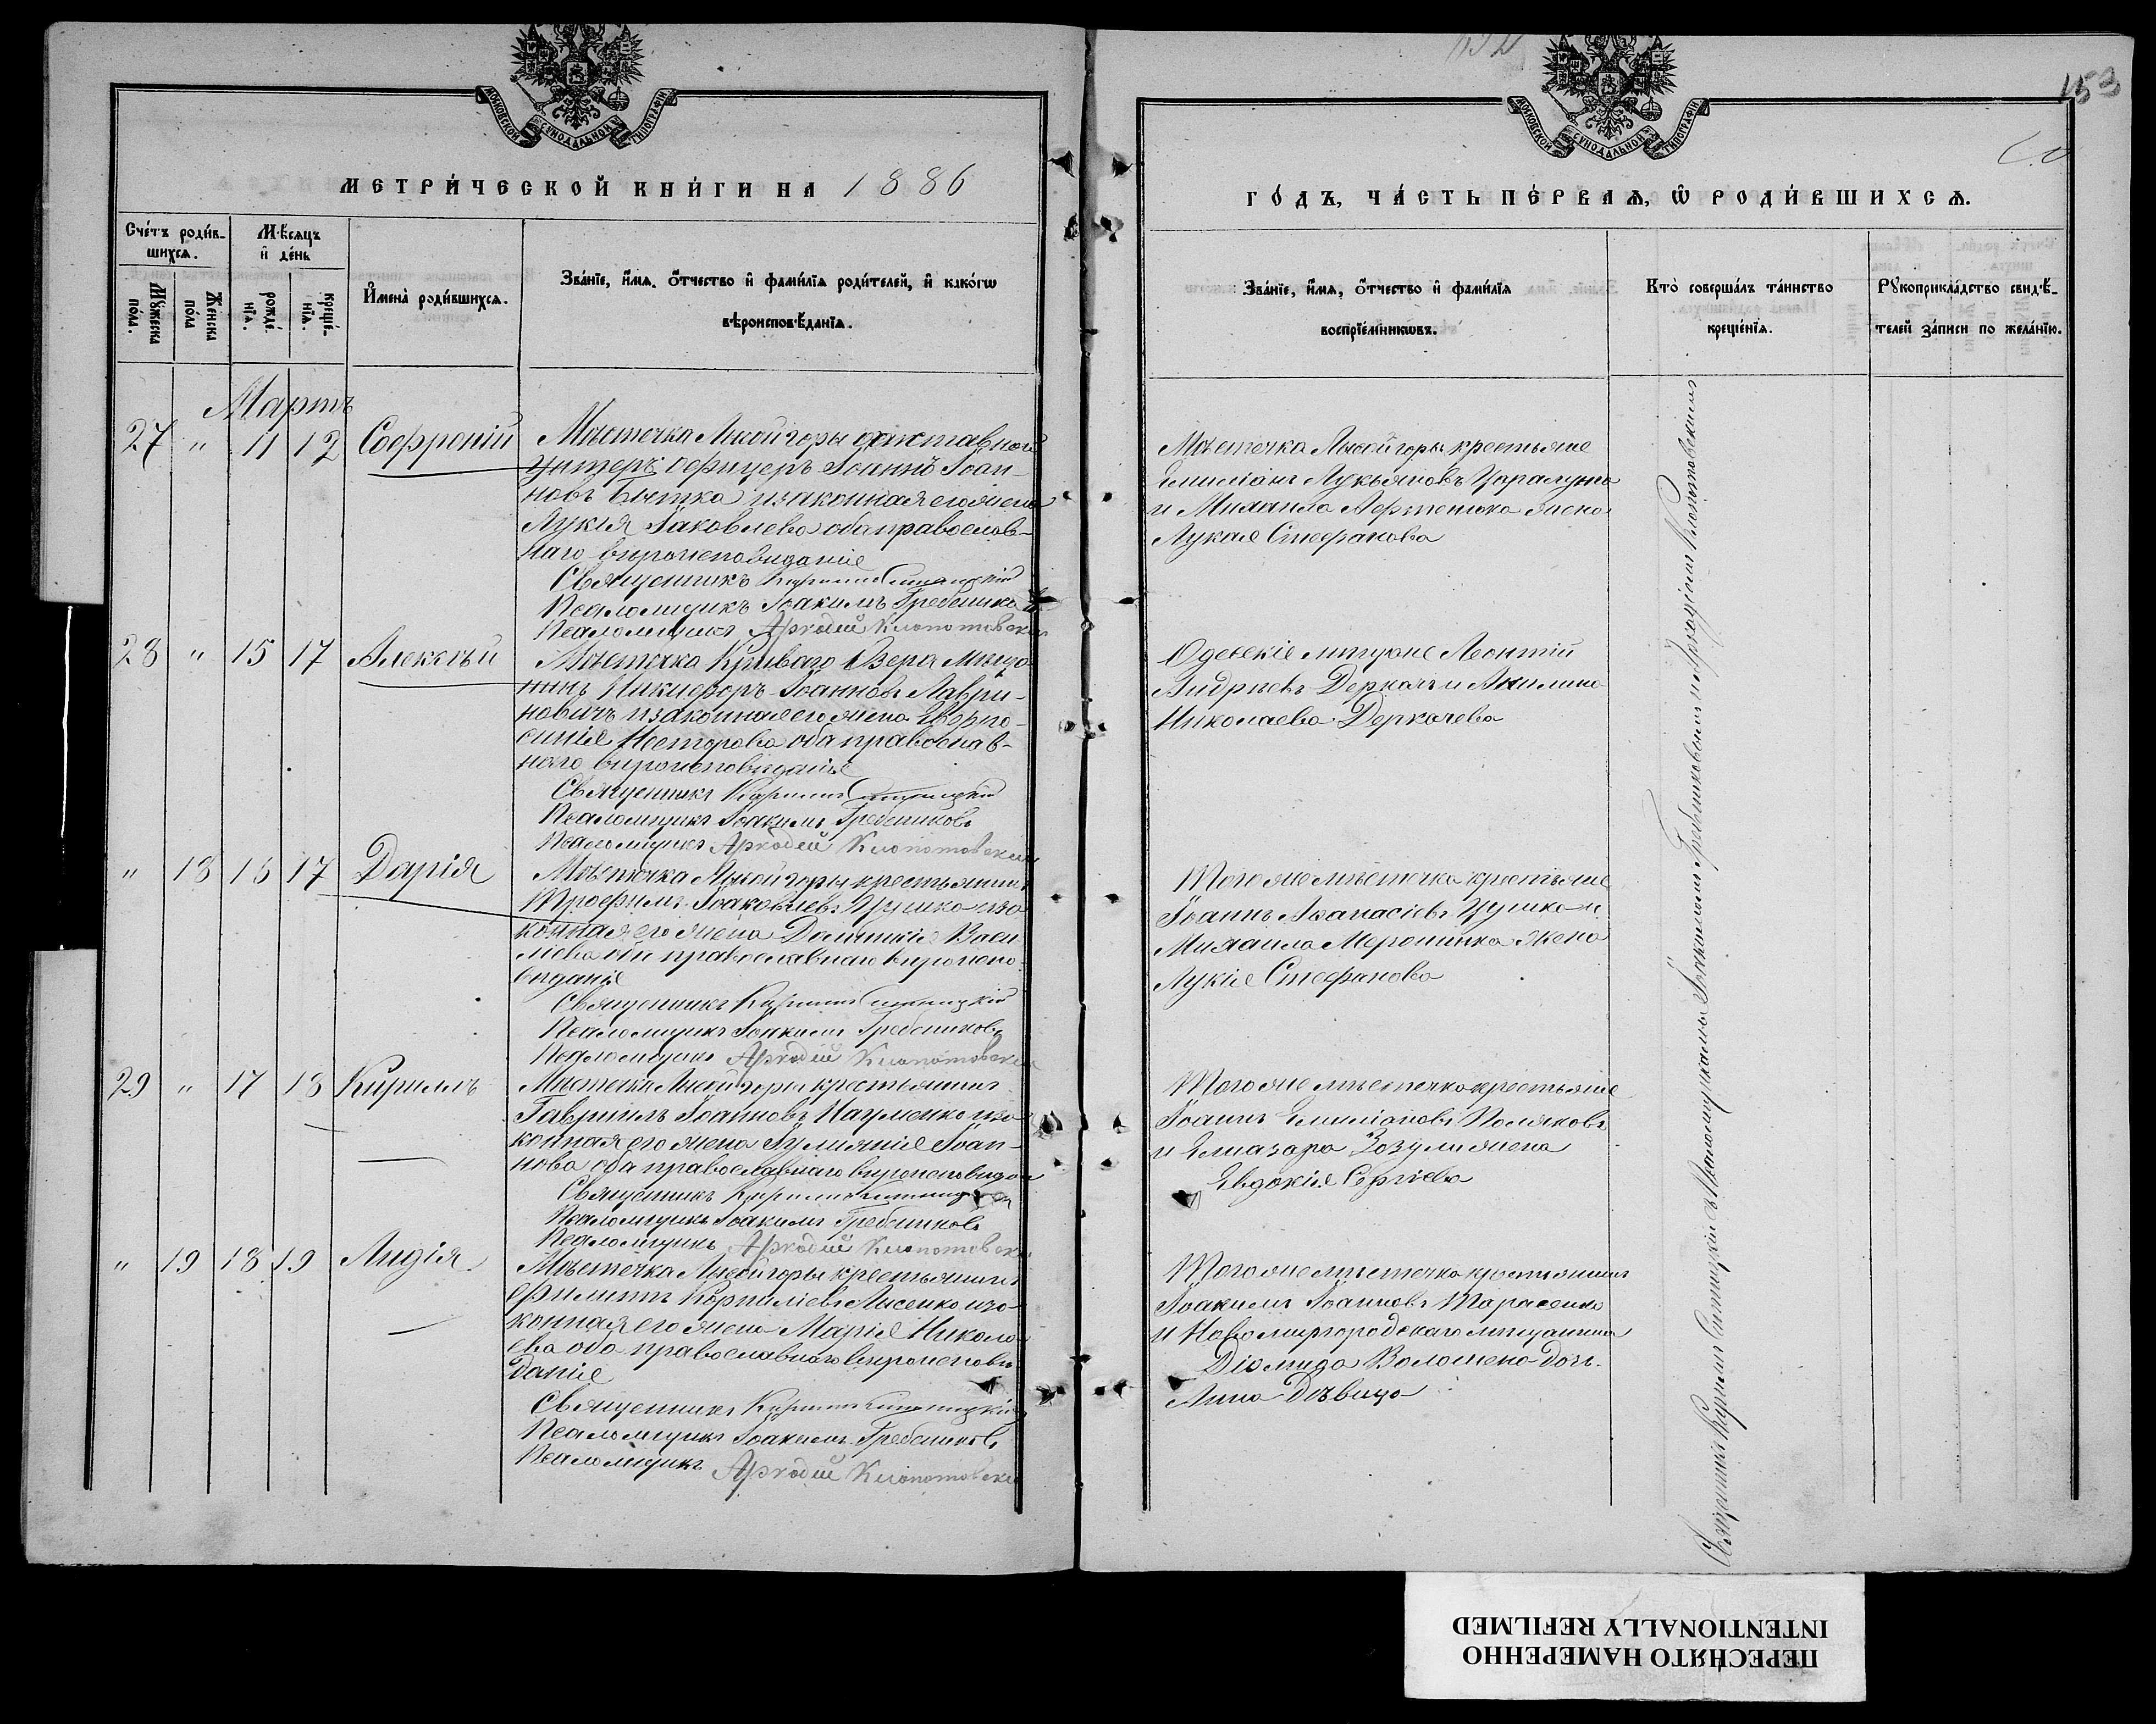 МОСКОВСКОЙ СУНОДАЛЬНОЙ ТИПОГРАФІИ
МЕТРИ́ЧЕСКОЙ КНИ́ГИ НА 1886
Сче́тъ роди́в-
шихсѧ.
Мѣ́сяцъ
и҆ де́нь
Мꙋ́жеска
по́ла.
Же́нска
по́ла
рожде́-
нїѧ.
креще́-
нїѧ.
И҆мена̀ роди́вшихсѧ.
Зва́нїе, и҆́мѧ, о҆́тчество и҆ фами́лїѧ роди́телей, и҆ како́гѡ
вѣроисповѣ́данїѧ.
Мартъ
27 " 11 12 Софроній
Мѣстечка Лысой горы отставной
Унтеръ Офицеръ Іоаннъ Іоан-
новъ изаконная его жена
Лукія Іаковлева оба православ-
наго вѣроисповѣданія
Священникъ Кириллъ
Псаломщикъ Іоакимъ Гребениковъ
Псаломщикъ Аркадій Клопотовскій
28 " 15 17 Алексѣй
Мѣстечка Криваго Озера мѣща-
нинъ Никифоръ Іоанновъ Лаври-
новичъ изаконная его жена Евфро-
синія Несторова оба православ-
наго вѣроисповѣданія
Священникъ Кириллъ
Псаломщикъ Іоакимъ Гребениковъ
Псаломщикъ Аркадій Клопотовскій
" 18 16 17 Дарія
Мѣстечка Лысой горы крестьянинъ
Трофимъ Іаковлевъ Цушко иза
конная его жена Домникія Васи
лева оба православнаго вѣроиспо-
вѣданія
Священникъ Кириллъ
Псаломщикъ Іоакимъ Гребениковъ
Псаломщикъ Аркадій Клопотовскій
29 " 17 18 Кириллъ
Мѣстечка Лысой горы крестьянинъ
Гавріилъ Іоанновъ Науменко иза-
конная его жена Іуліанія Іоан-
нова оба православнаго вѣроисповѣдан
Священникъ Кириллъ
Псаломщикъ Іоакимъ Гребениковъ
Псаломщикъ Аркадій Клопотовскій
" 19 18 19 Лидія
Мѣстечка Лысой горы крестьянинъ
Филиппъ Корниліевъ Лисенко иза-
конная его жена Марія Никола
ева оба православнаго вѣроисповѣ
данія
Священникъ Кириллъ
Псаломщикъ Іоакимъ Гребениковъ
Псаломщикъ Аркадій Клопотовскій
153
МОСКОВСКОЙ СУНОДАЛЬНОЙ ТИПОГРАФІИ
ГО́ДЪ, ЧА́СТЬ ПЕ́РВАѦ, Ѡ РОДИ́ВШИХСѦ.
Зва́нїе, и҆́мѧ, о҆́тчество и҆ фами́лїѧ
воспрїе́мникѡвъ.
Кто̀ соверша́лъ та́инство
креще́нїѧ.
Рꙋкоприкла́дство свидѣ́-
телей за́писи по жела́нїю.
Мѣстечка Лысой горы крестьяне
Емиліанъ Лукьяновъ
и Михаила жена
Лукія Стефанова
Одесскіе мѣщане Леонтій
Андреевъ Деркачъ и Акилина
Николаева Деркачева
Того же мѣстечка крестьяне
Іоаннъ Афанасіевъ Цушко и
Михаила жена
Лукія Стефанова
Того же мѣстечка крестьяне
Іоаннъ Емиліановъ Поляковъ
и Елиазара Зозули жена
Евдокія Сергіева
Того же мѣстечка крестьянинъ
Іоакимъ Іоанновъ Тарасенко
и Новомиргородскаго мѣщанина
Діомида Волошена дочь
Анна дѣвица
Священникъ Кириллъ съ Псаломщиками Іоакимомъ Гребениковымъ и Аркадіемъ Клопотовскимъ
ПЕРЕСНЯТО НАМЕРЕННО
INTENTIONALLY REFILMED